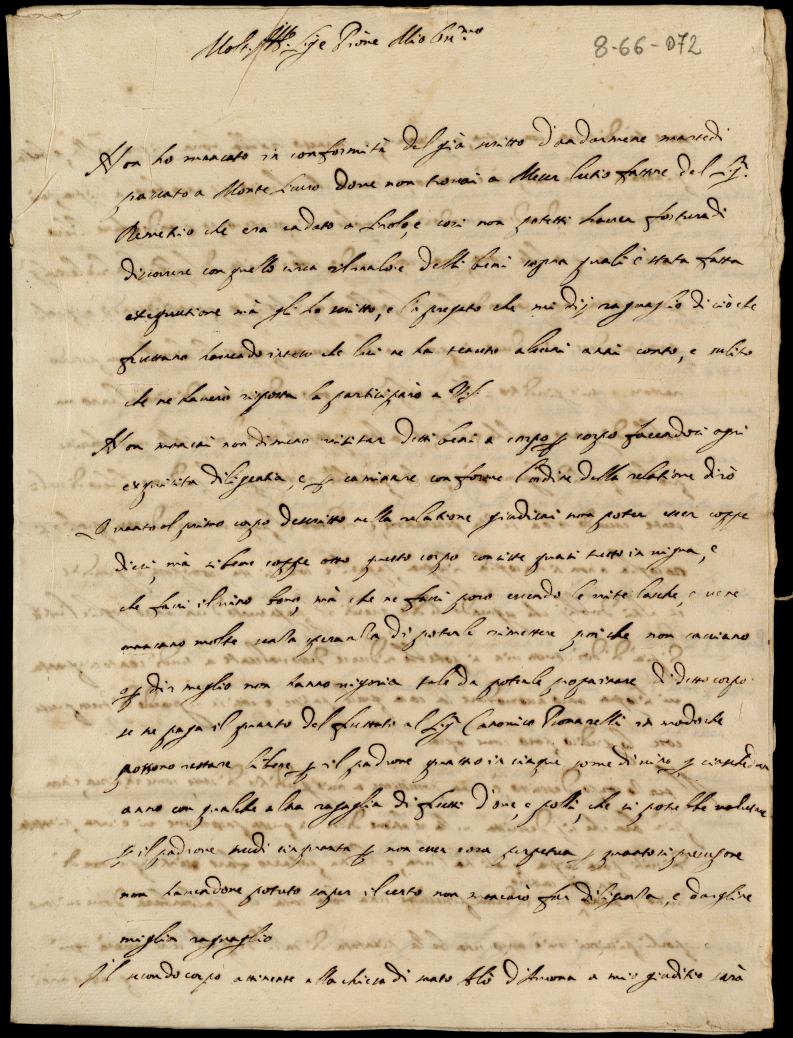 Molt. Ill.re Sig.e Prone Mio Oss.mo
8-66-072
Non ho mancato in conformità del già scritto d'andarmene martedì
passato a Monte dove non trovai a Messer fattore del Sig.r
che era andato a e così non potetti haver fortuna di
discorrere con quello circa il valore delli beni sopra quali è stata fatta
essecutione mà gli ho scritto, e pregato che mi dij raguaglio di ciò che
fruttano havendo inteso che lui ne ha tenuto alcuni anni conto, e subito
che ne haverò risposta la participarò a VS.
Non mancai non dimeno visitar detti beni a corpo p corpo facendoci ogni
esquisita diligentia, e p caminare conforme l'ordine della relatione dirò
Quanto al primo corpo descritto nella relatione giudicai non poter esser coppe
dieci, mà si bene coppe otto questo corpo consiste quasi tutto in vigna, e
che facci il vino bono, mà che ne facci poco essendo le vite, e ve ne
mancano molte senza speranza di poterle rimettere poi che non cacciano
o p dir meglio non hanno vigoria tale da poterle propaginare di detto corpo
se ne paga il quarto del fruttato al Sig.r Canonico in modo che
possono restare libere p il padrone quattro in cinque some di vino p ciaschedun
anno con qualche altra regaglia di frutti d'ove, e polli, che si potrebbe valutare
p il padrone scudi cinquanta p non esser cosa perpetua p quanto
non havendone potuto saper il certo non mancarò far diligenza, e dargline
miglior raguaglio
Il secondo corpo attinente alla chiesa di santo d'Ancona a mio giuditio sarà